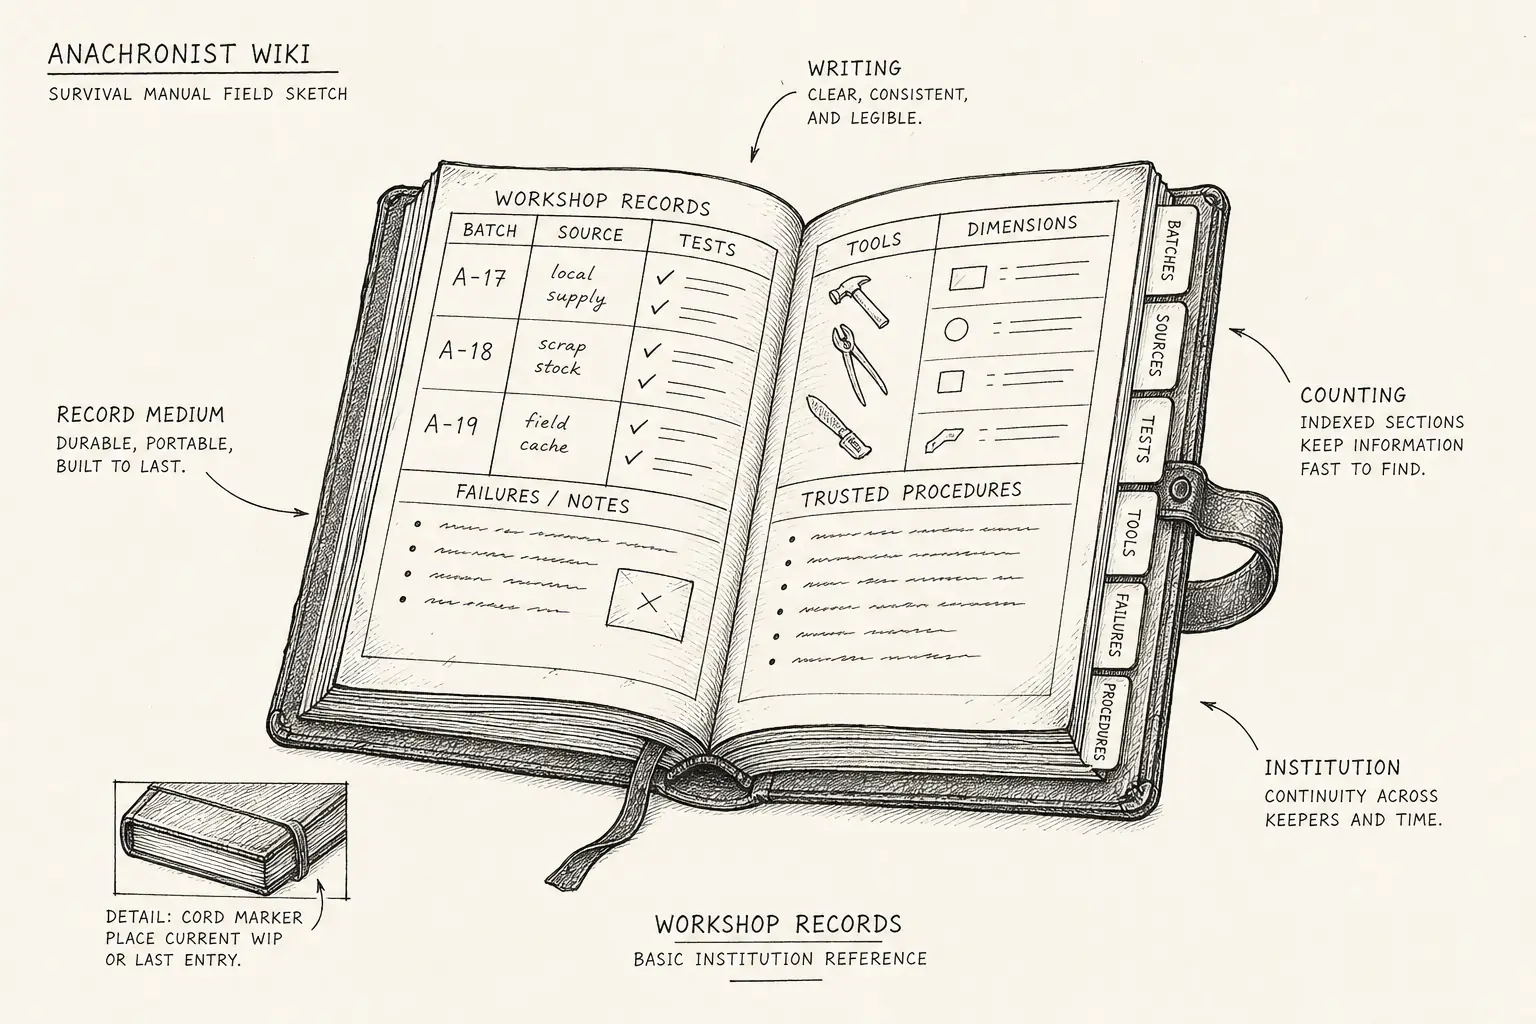 ANACHRONIST WIKI
SURVIVAL MANUAL FIELD SKETCH
WRITING
CLEAR, CONSISTENT,
AND LEGIBLE.
RECORD MEDIUM
DURABLE, PORTABLE,
BUILT TO LAST.
WORKSHOP RECORDS
BATCH SOURCE TESTS
A-17 local
supply
A-18 scrap
stock
A-19 field
cache
FAILURES / NOTES
TOOLS DIMENSIONS
TRUSTED PROCEDURES
BATCHES
SOURCES
TESTS
TOOLS
FAILURES
PROCEDURES
COUNTING
INDEXED SECTIONS
KEEP INFORMATION
FAST TO FIND.
INSTITUTION
CONTINUITY ACROSS
KEEPERS AND TIME.
DETAIL: CORD MARKER
PLACE CURRENT WIP
OR LAST ENTRY.
WORKSHOP RECORDS
BASIC INSTITUTION REFERENCE